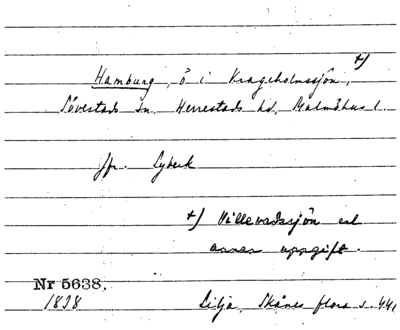 Hamburg, ö i Krageholmssjön, +)
Sövestads sn. Herrestads hd, Malmöhus l.
jfr. Lybeck
+) Villevadssjön enl
annan uppgift.
Nr 5638.
1838 Lilja, Skånes flora s. 441